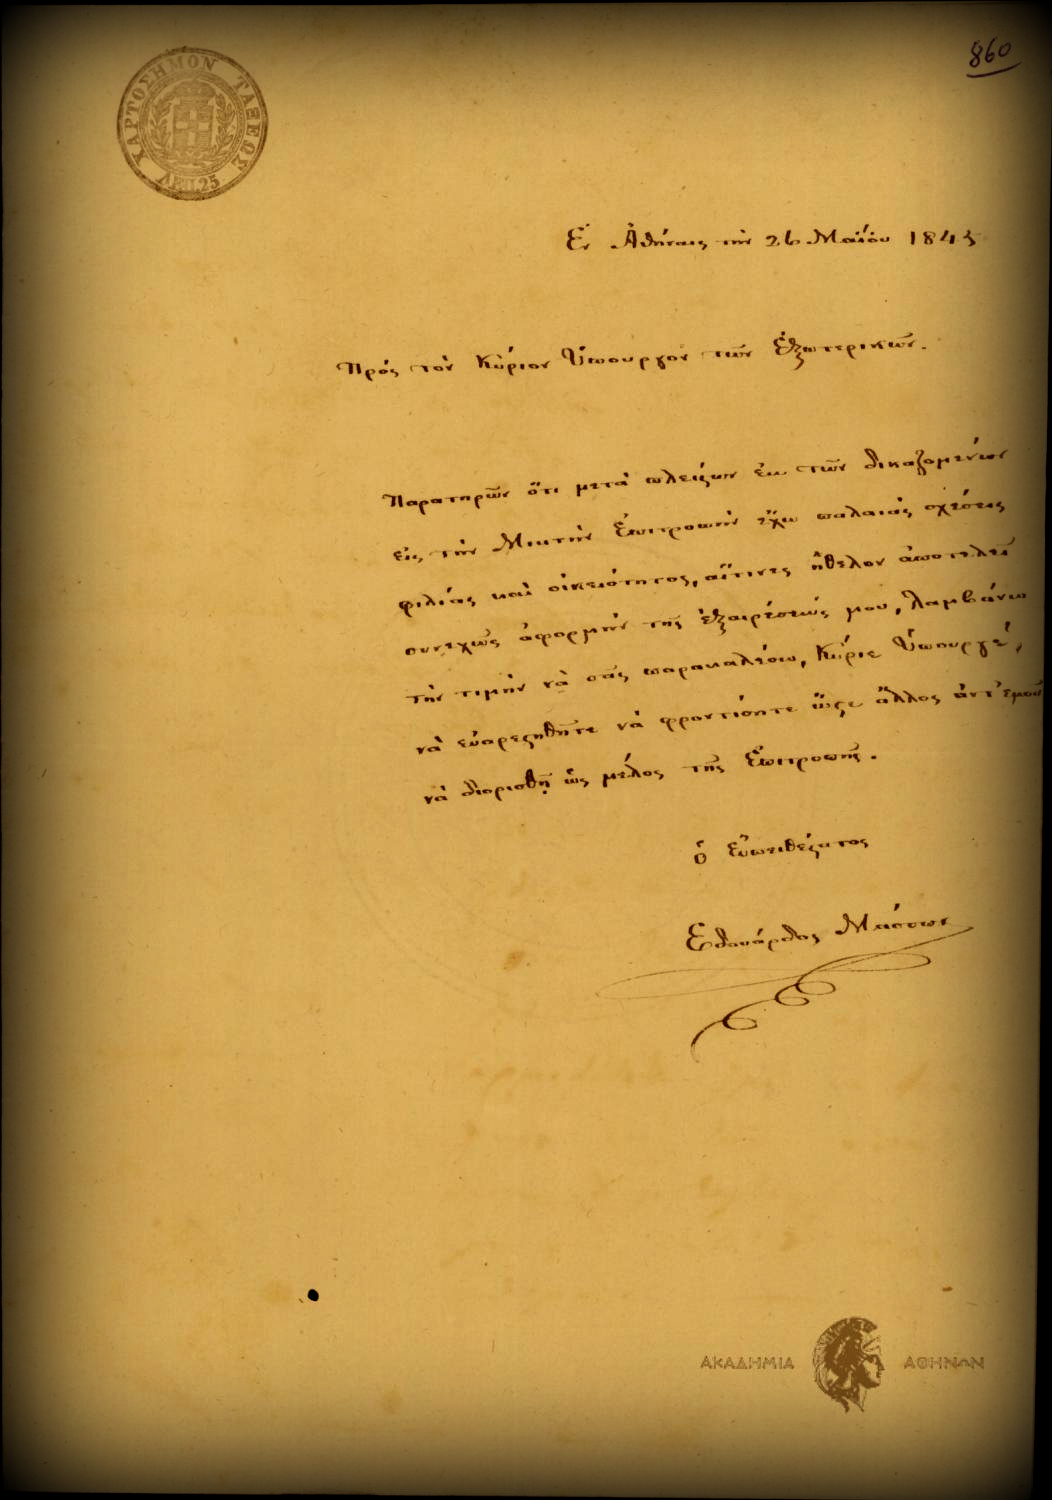 860
ΧΑΡΤΟΣΗΜΟΝ ΤΑΞΕΩΣ
ΛΕΠ.25
Ἐν Ἀθήναις τὴν 26 Μαΐου 1845
Πρὸς τὸν Κύριον Ὑπουργὸν τῶν Ἐξωτερικῶν.
Παρατηρῶν ὅτι μετὰ πλείςων ἐκ τῶν δικαζομένων
εἰς τὴν Μικτὴν Ἐπιτροπὴν ἔχω παλαιὰς σχέσεις
φιλίας καὶ οἰκειότητος, αἵτινες ἤθελον ἀποτελεῖ
συνεχῶς ἀφορμὴν τῆς ἐξαιρέσεώς μου, λαμβάνω
τὴν τιμὴν νὰ σᾶς παρακαλέσω, Κύριε Ὑπουργέ,
νὰ εὐαρεςηθῆτε νὰ φροντίσητε ὥςε ἄλλος ἀντ' ἐμοῦ
νὰ διορισθῇ ὡς μέλος τῆς Ἐπιτροπῆς.
ὁ Εὐπειθέςατος
Ἐδουάρδος Μάσσων
ΑΚΑΔΗΜΙΑ ΑΘΗΝΩΝ